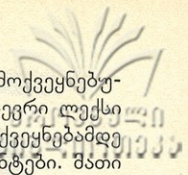 მოქვეყნებუ-
ევრი ლექსი
ქვეყნებამდე
ნტები. მათი